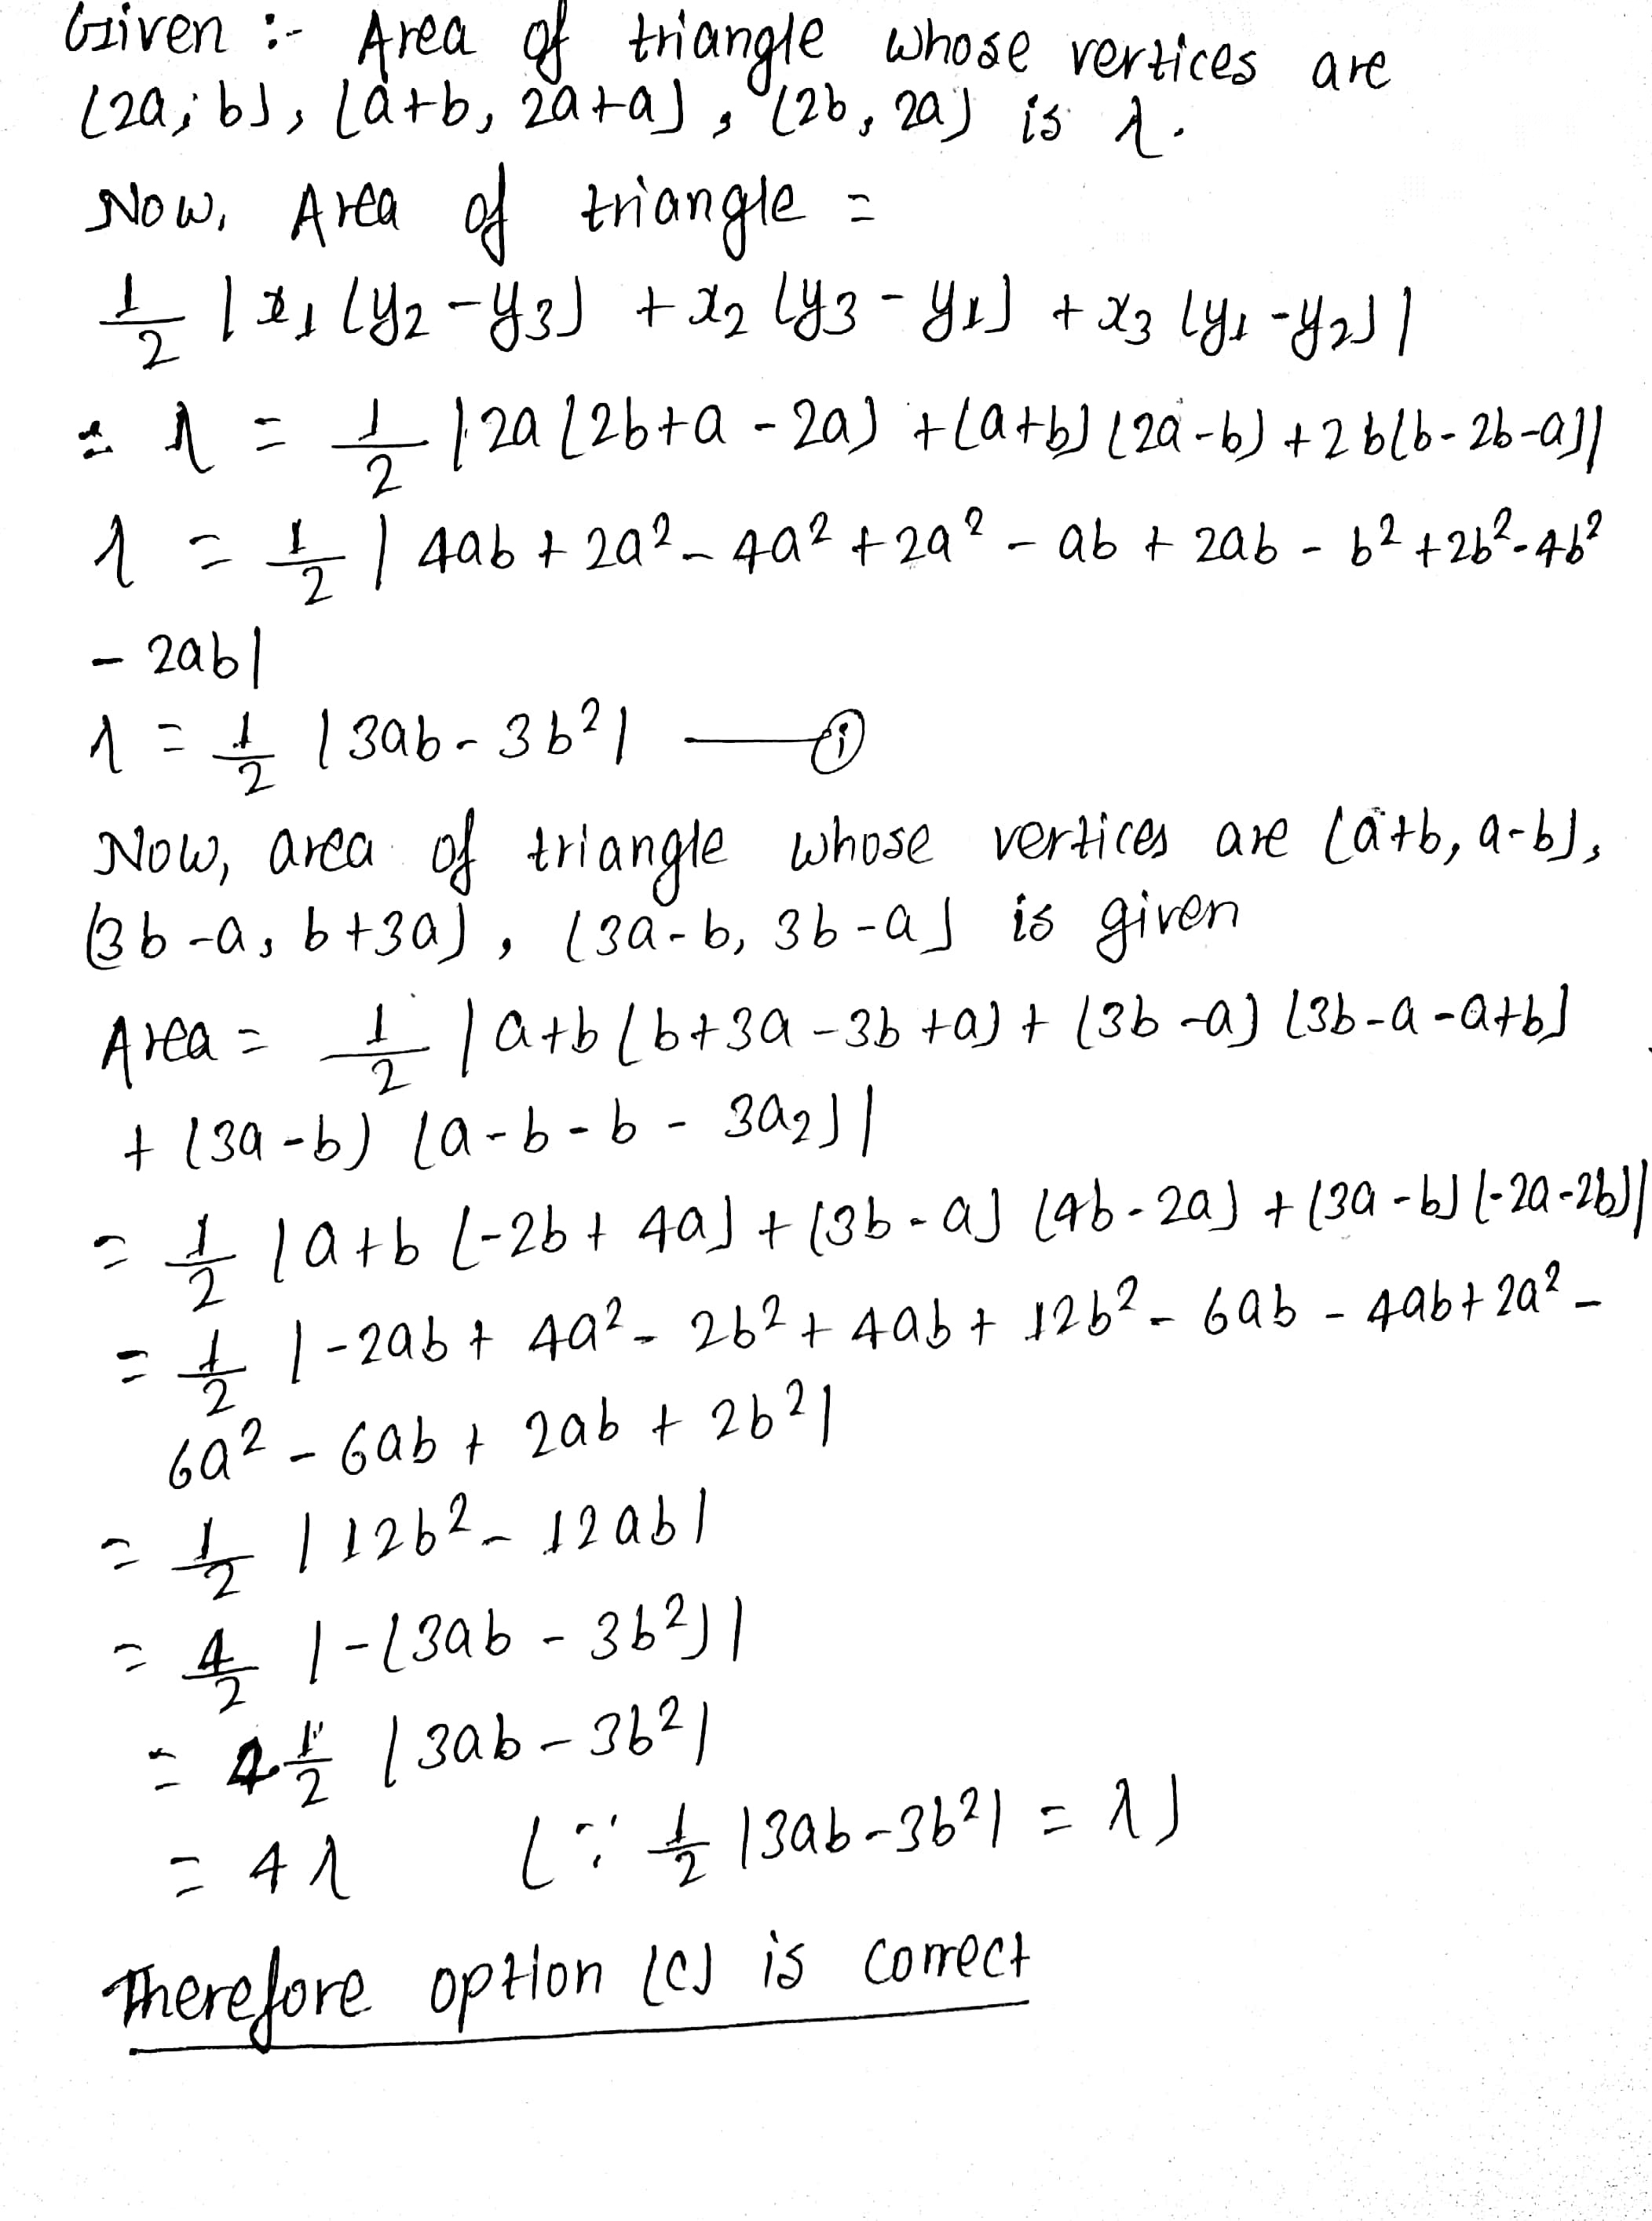 Given :- Area of triangle whose vertices are
(2a, b), (a+b, 2a+a), (2b, 2a) is λ.
Now, Area of triangle =
1/2 |x1 (y2-y3) + x2 (y3-y1) + x3 (y1-y2)|
= λ = 1/2 |2a (2b+a-2a) + (a+b) (2a-b) + 2b(b-2b-a)|
λ = 1/2 | 4ab + 2a² - 4a² + 2a² - ab + 2ab - b² + 2b² - 4b²
- 2ab|
λ = 1/2 |3ab - 3b²| — (i)
Now, area of triangle whose vertices are (a+b, a-b),
(3b-a, b+3a), (3a-b, 3b-a) is given
Area = 1/2 | a+b (b+3a-3b+a) + (3b-a) (3b-a-a+b)
+ (3a-b) (a-b-b-3a2)|
= 1/2 |a+b (-2b+4a) + (3b-a) (4b-2a) + (3a-b) (-2a-2b)|
= 1/2 |-2ab + 4a² - 2b² + 4ab + 12b² - 6ab - 4ab + 2a² -
6a² - 6ab + 2ab + 2b²|
= 1/2 |12b² - 12ab|
= 4/2 |-(3ab - 3b²)|
= 4·1/2 |3ab - 3b²|
= 4λ (∵ 1/2 |3ab-3b²| = λ)
Therefore option (c) is correct